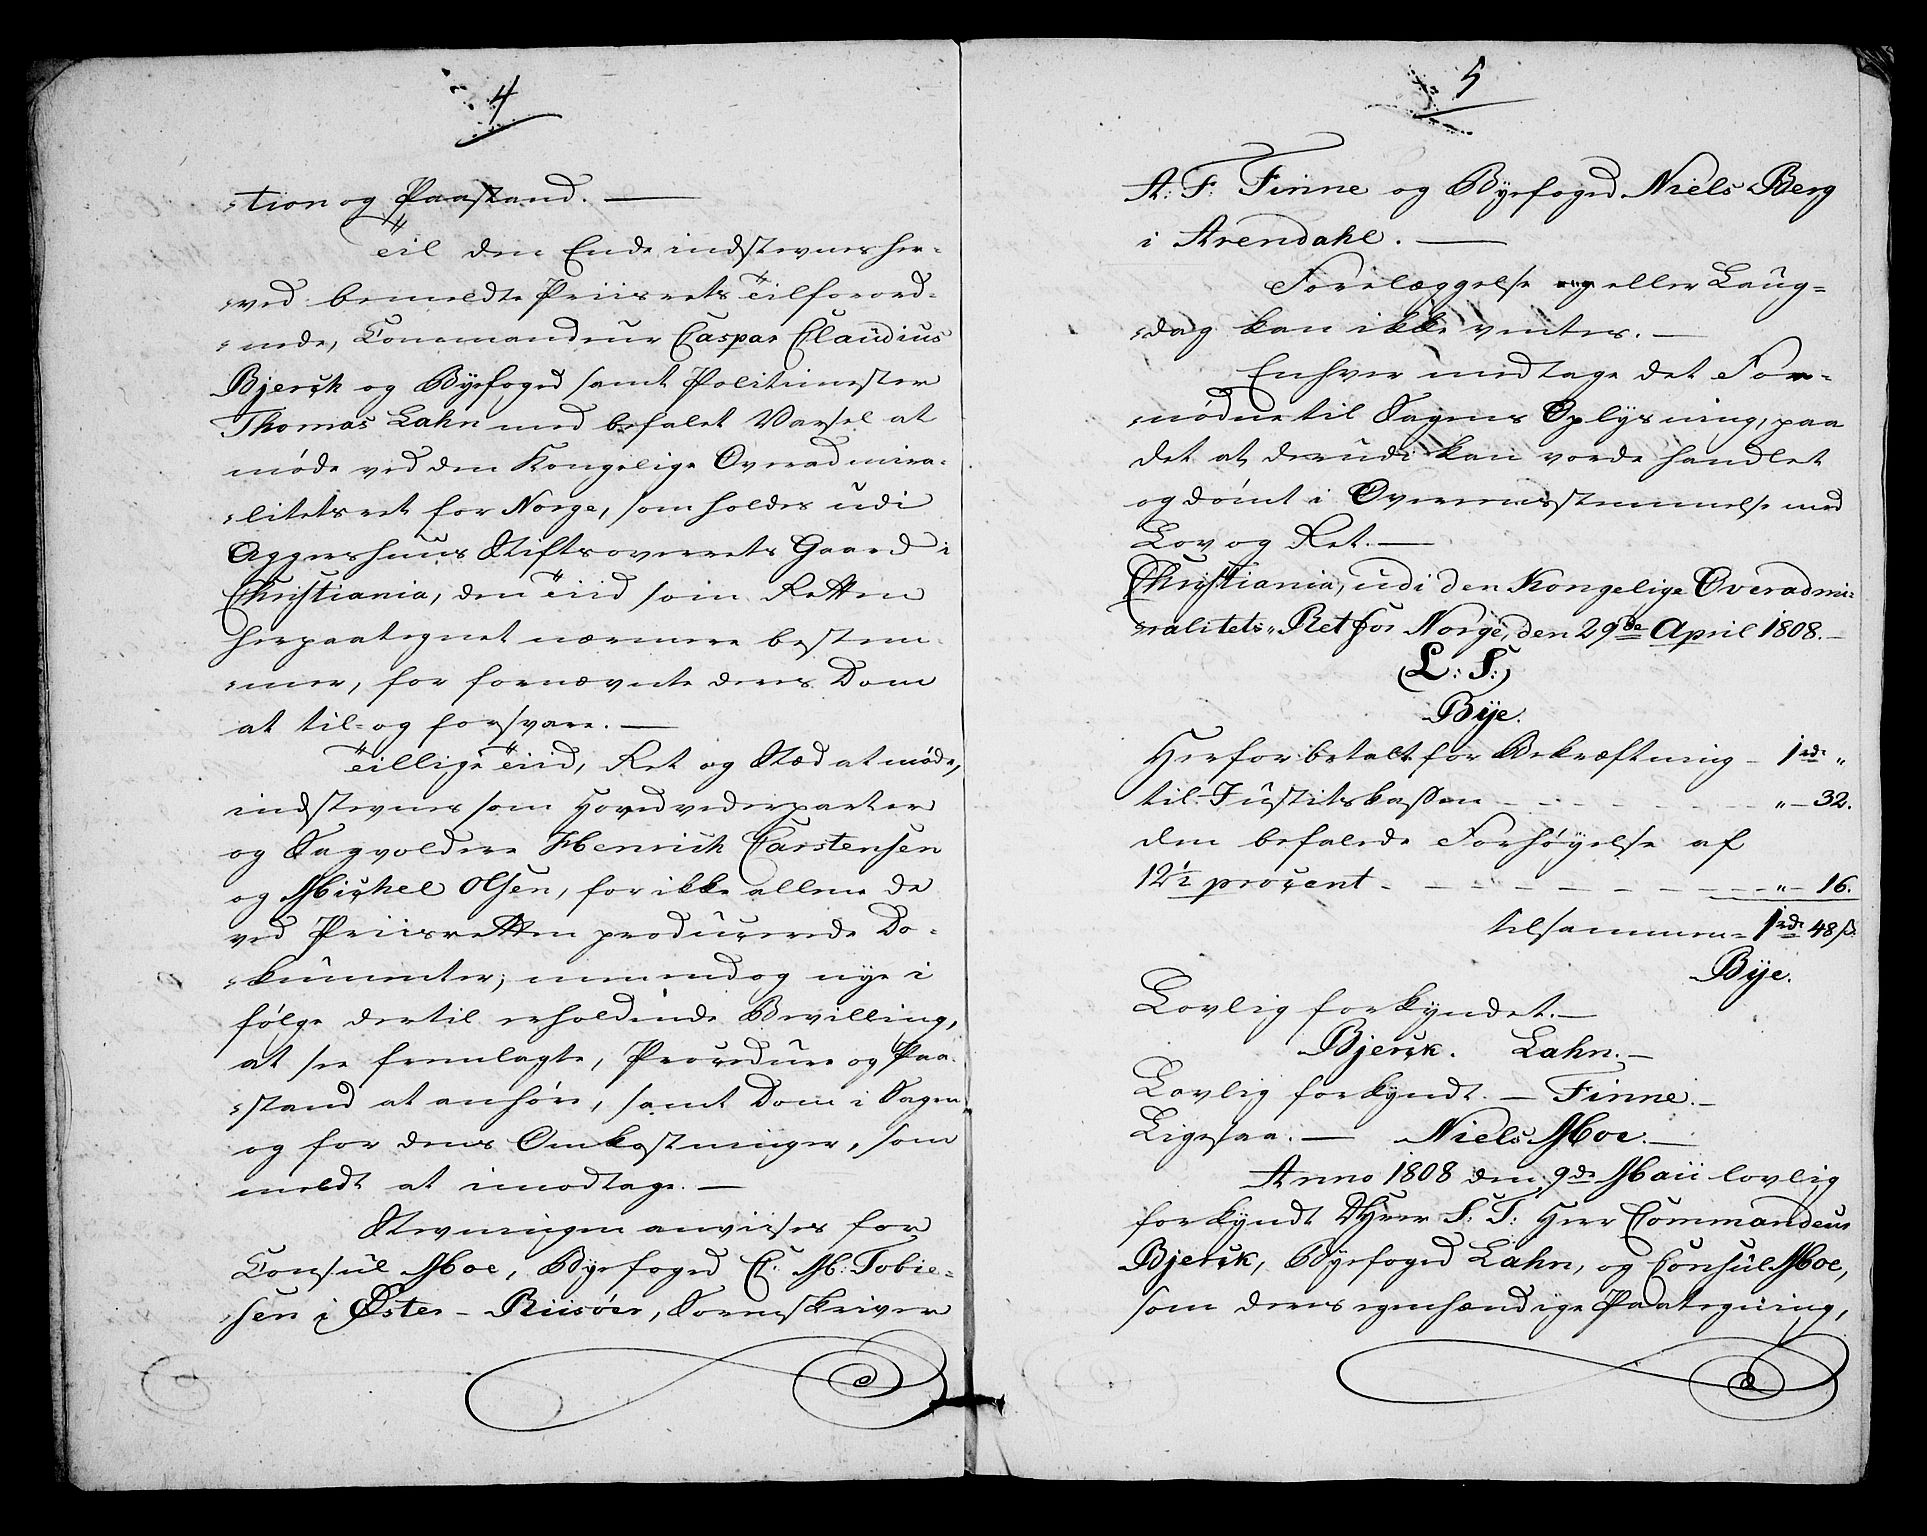 4
-tion og Paastand. —
Til den Ende indstevnes her-
-ved bemeldte Priisrets Tilforord-
-nede, Commandeur Caspar Claudius
Bjerck og Byefoged samt Politimester
Thomas Lahn med befalet Varsel at
møde ved den Kongelige Overadmira-
-litetsret for Norge, som holdes udi
Aggershuus Stiftsoverrets Gaard i
Christiania, den Tiid som Retten
herpaategnet nærmere bestem-
-mer, for fornævnte deres Dom
at til- og forsvare. —
Tillige Tiid, Ret og Stæd at møde,
indstevnes som Hovedvederparter
og Sagvoldere Henrich Carstensen
og Michel Olsen, for ikke allene de
ved Priisretten producerede Do-
-kumenter, men endog nye i
følge dertil erholdende Bevilling,
at see fremlagte, Procedure og Paa-
-stand at anhøre, samt Dom i Sagen
og for dens Omkostninger, som
meldt at imodtage. —
Stevningen anviises for
Consul Moe, Byefoged C. M: Tobie-
-sen i Øster-Riisøer, Sorenskriver
5
A: F: Finne og Byefoged Niels Berg
i Arendahl. —
Forelæggelse og eller Laug-
-dag kan ikke ventes. —
Enhver medtage det For-
-nødne til Sagens Oplysning, paa
det at derudi kan vorde handlet
og dømt i Overeensstemmelse med
Lov og Ret. —
Christiania, udi den Kongelige Overadmi-
-ralitets-Ret for Norge, den 29de April 1808. —
(L: S:)
Bye.
Herfor betalt for Bekræftning - 1 rd. "
til Justitskassen - - - " - 32.
den befalede Forhøyelse af
12½ procent - - - " - 16.
tilsammen = 1 rd. 48 s.
Bye.
Lovlig forkyndet. —
Bjerck. Lahn. —
Lovlig forkyndt. — Finne. —
Ligesaa. — Niels Moe. —
Anno 1808 den 9de Maii lovlig
forkyndt Herr S: T: Herr Commandeur
Bjerck, Byefoged Lahn, og Consul Moe,
som deres egenhændige Paategning,